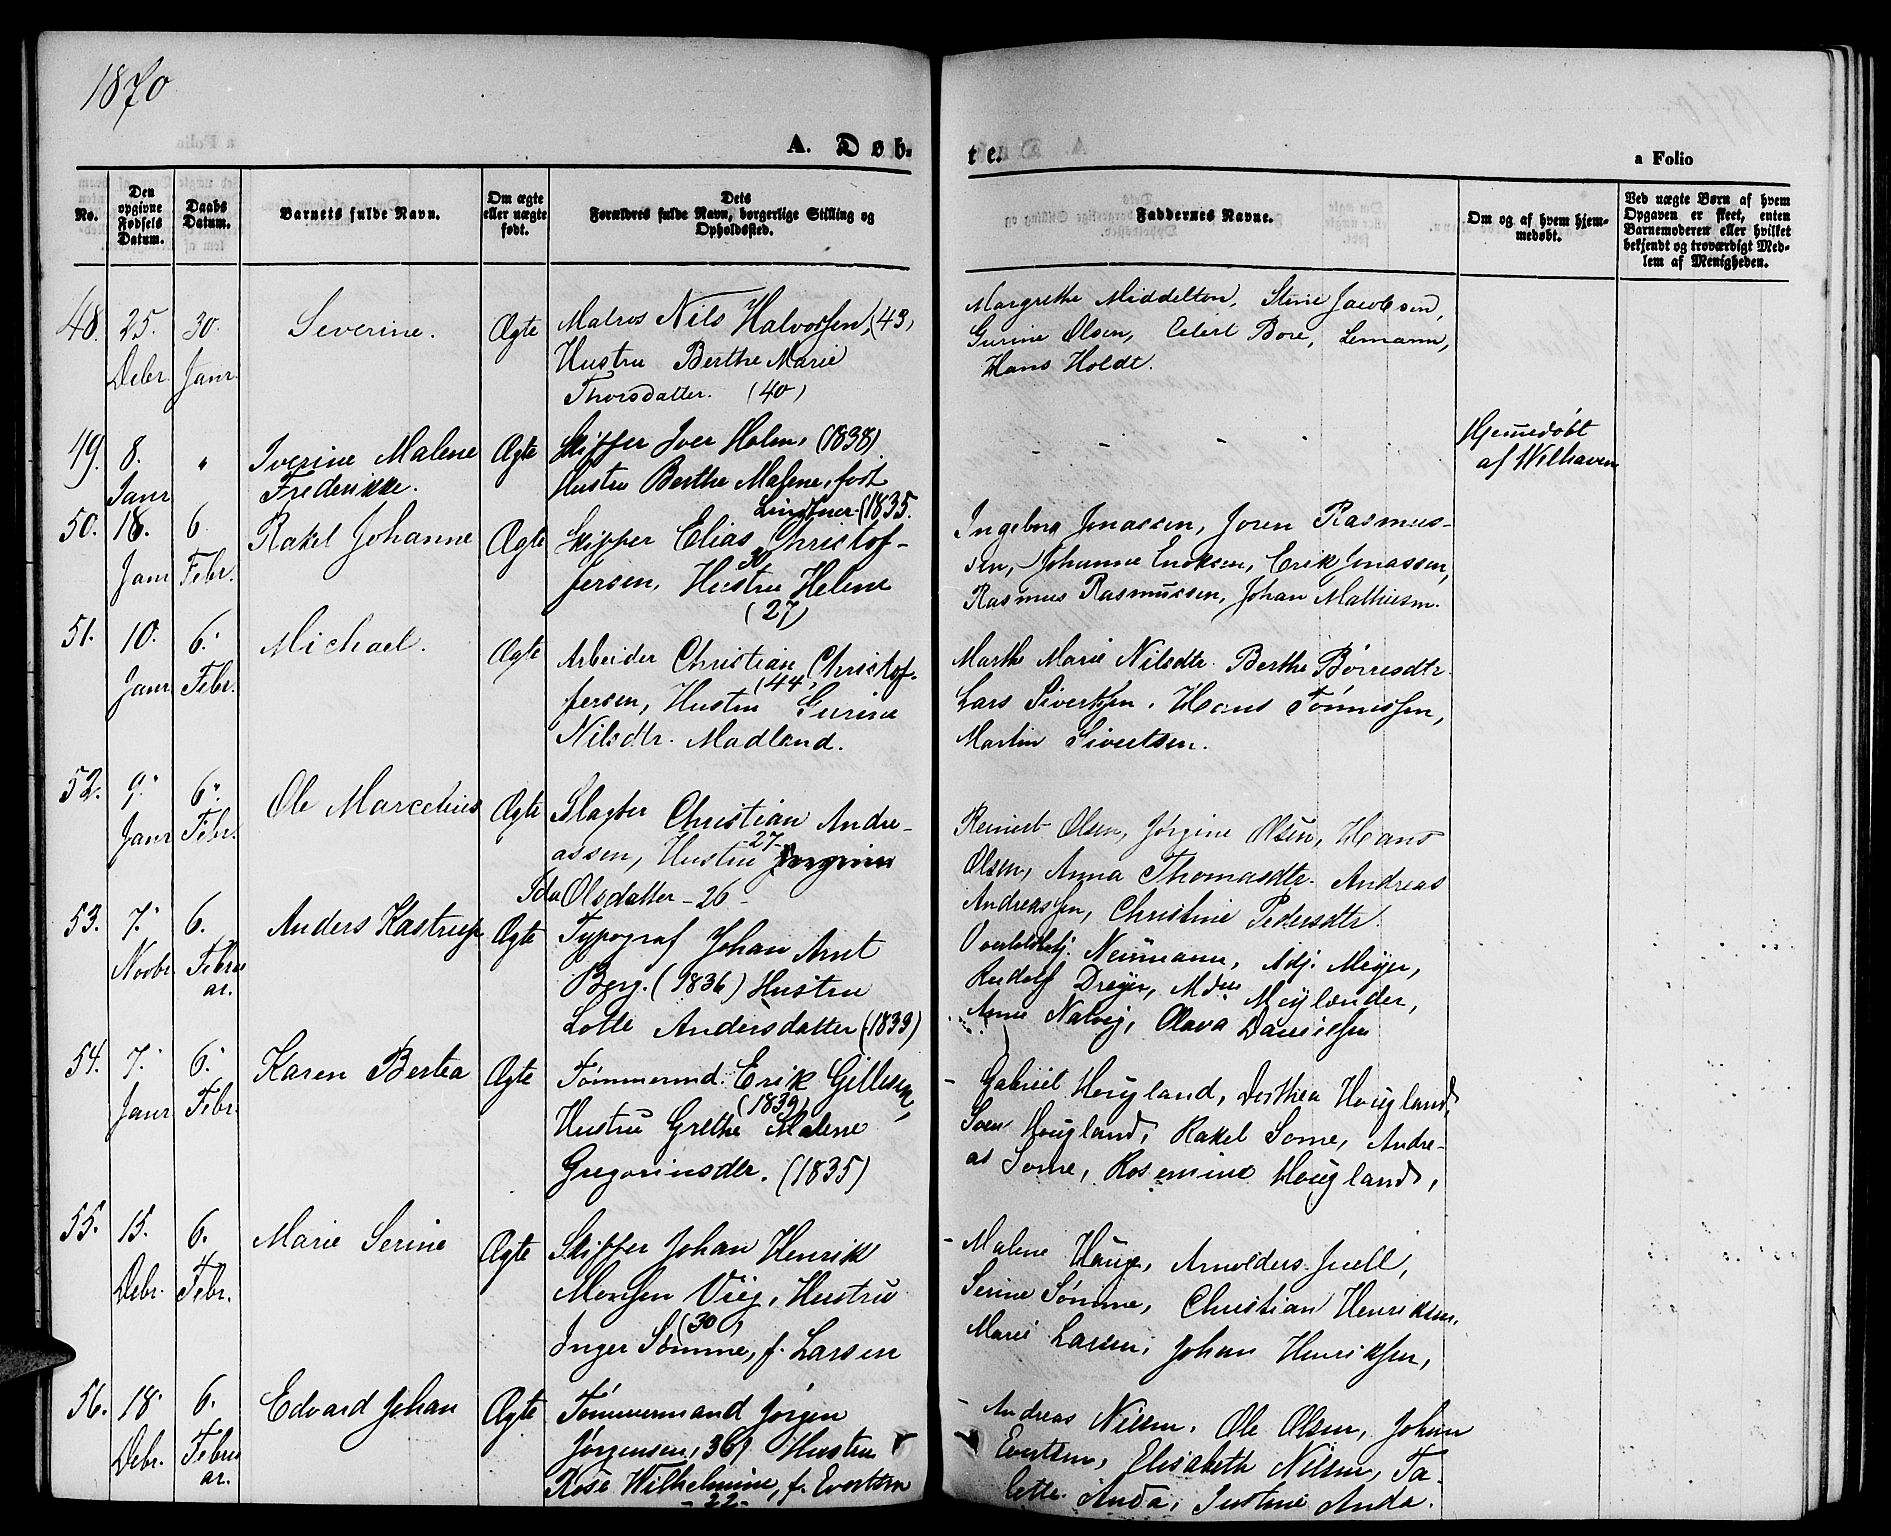 1870
A. Døb-
te.
a Folio
No.
Den opgivne Fødsels Datum.
Daabs Datum.
Barnets fulde Navn.
Om ægte eller uægte født.
Dets Forældres fulde Navn, borgerlige Stilling og Opholdssted.
Faddernes Navne.
Om og af hvem hjemmedøbt.
Ved uægte Børn af hvem Opgaven er skeet, enten Barnemoderen eller hvilket bekjendt og troværdigt Medlem af Menigheden.
48. 25. Debr. 30. Janr. Severine. Ægte
Matros Nils Halvorsen, (43)
Hustru Berthe Marie
Thorsdatter. (40)
Margrethe Middelton, Stine Jacobsen,
Gurine Olsen, Eilert Bore, Lemann,
Hans Holdt.
49. 8. Janr " Iverine Malene
Frederikke. Ægte
Skipper Iver Holm, (1838)
Hustru Berthe Malene, født
Lindtner (1835.
- - -
Hjemmedøbt
af Wilhaven
50. 18. Janr 6. Febr. Rakel Johanne Ægte
Skipper Elias Christof-
30
fersen, Hustru Helene
(27)
Ingeborg Jonassen, Joren Rasmus-
sen, Johanne Enoksen, Erik Jonassen,
Rasmus Rasmussen, Johan Mathiesen.
51. 10. Janr 6. Febr. Michael. Ægte
Arbeider Christian Christof-
(44)
fersen, Hustru Gurine
Nilsdtr. Madland.
Marthe Marie Nilsdtr. Berthe Børresdtr
Lars Sivertsen, Hans Tønnessen,
Martin Sivertsen.
52. 9. Janr 6. Febr. Ole Marcelius Ægte
Slagter Christian Andre-
27
assen, Hustru
Ida Olsdatter - 26 -
Reinert Olsen, Jørgine Olsen, Hans
Olsen, Anna Thomasdtr. Andreas
Andreassen, Christine Pedersdtr.
53. 7. Novbr 6. Februar. Anders Kastrup Ægte
Typograf Johan Arnt
Berg. (1836) Hustru
Lotte Andersdatter (1839)
Neumann, Adj. Meyer,
Rudolf Dreyer, Meylænder,
Anne Natvig, Olava Danielsen
54. 7. Janr 6. Febr. Karen Bertea Ægte
Tømmermd. Erik Gillesen,
(1839)
Hustru Grethe Malene
Gregoriusdtr. (1835)
- Gabriel Hougland, Dorthea Hougland,
Sven Hougland, Rakel Some, Andre-
as Some, Rosemine Hougland,
55. 15. Debr. 6. Febr. Marie Serine Ægte
Skipper Johan Henrik
Monsen Vieg, Hustru
(30)
Inger Sømme, f. Larsen
- Malene Hauge, Arnolders Juell,
Serine Sømme, Christian Henriksen,
Marie Larsen, Johan Henriksen,
56. 18. Debr. 6. Februar. Edvard Johan Ægte
Tømmermand Jørgen
Jørgensen, 36) Hustru
Rose Wilhelmine, f. Evertsen
- 22 -
- Andreas Nilsen, Ole Olsen, Johan
Evertsen, Elisabeth Nilsen, Ta-
lette Anda, Justine Anda.